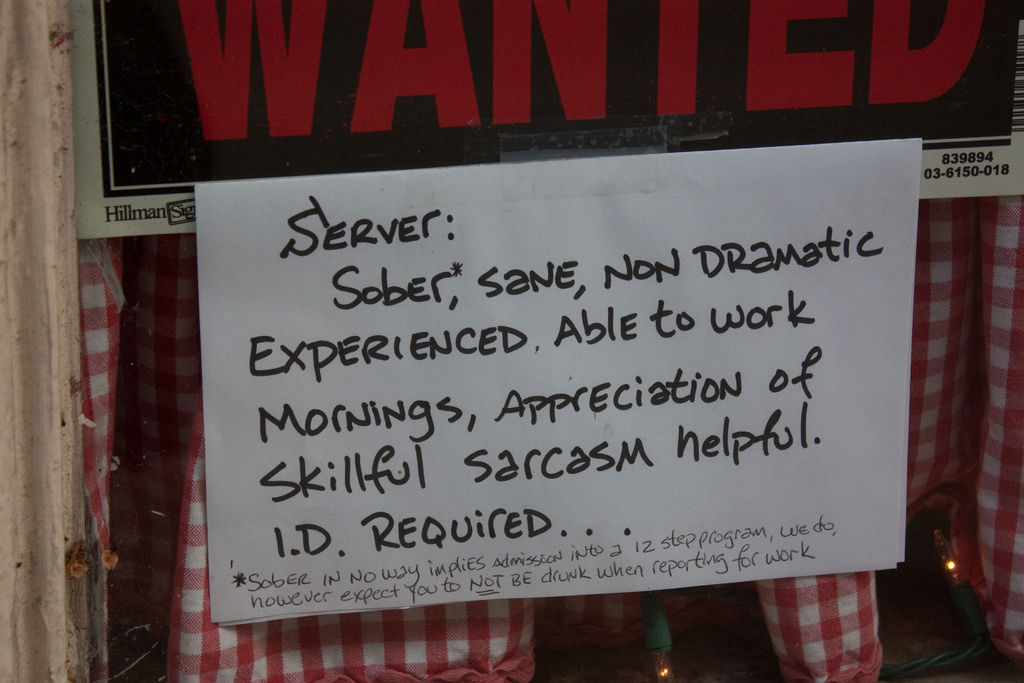 WANTED
839894
03-6150-018
Hillman Sig
SERVER:
Sober*, SANE, NON DRamatic
EXPERIENCED. Able to work
Mornings, Appreciation of
Skillful sarcasm helpful.
I.D. REQUIRED...
*SOBER IN NO WAY implies Admission into a 12 step program, we do,
however expect You to NOT BE drunk when reporting for work